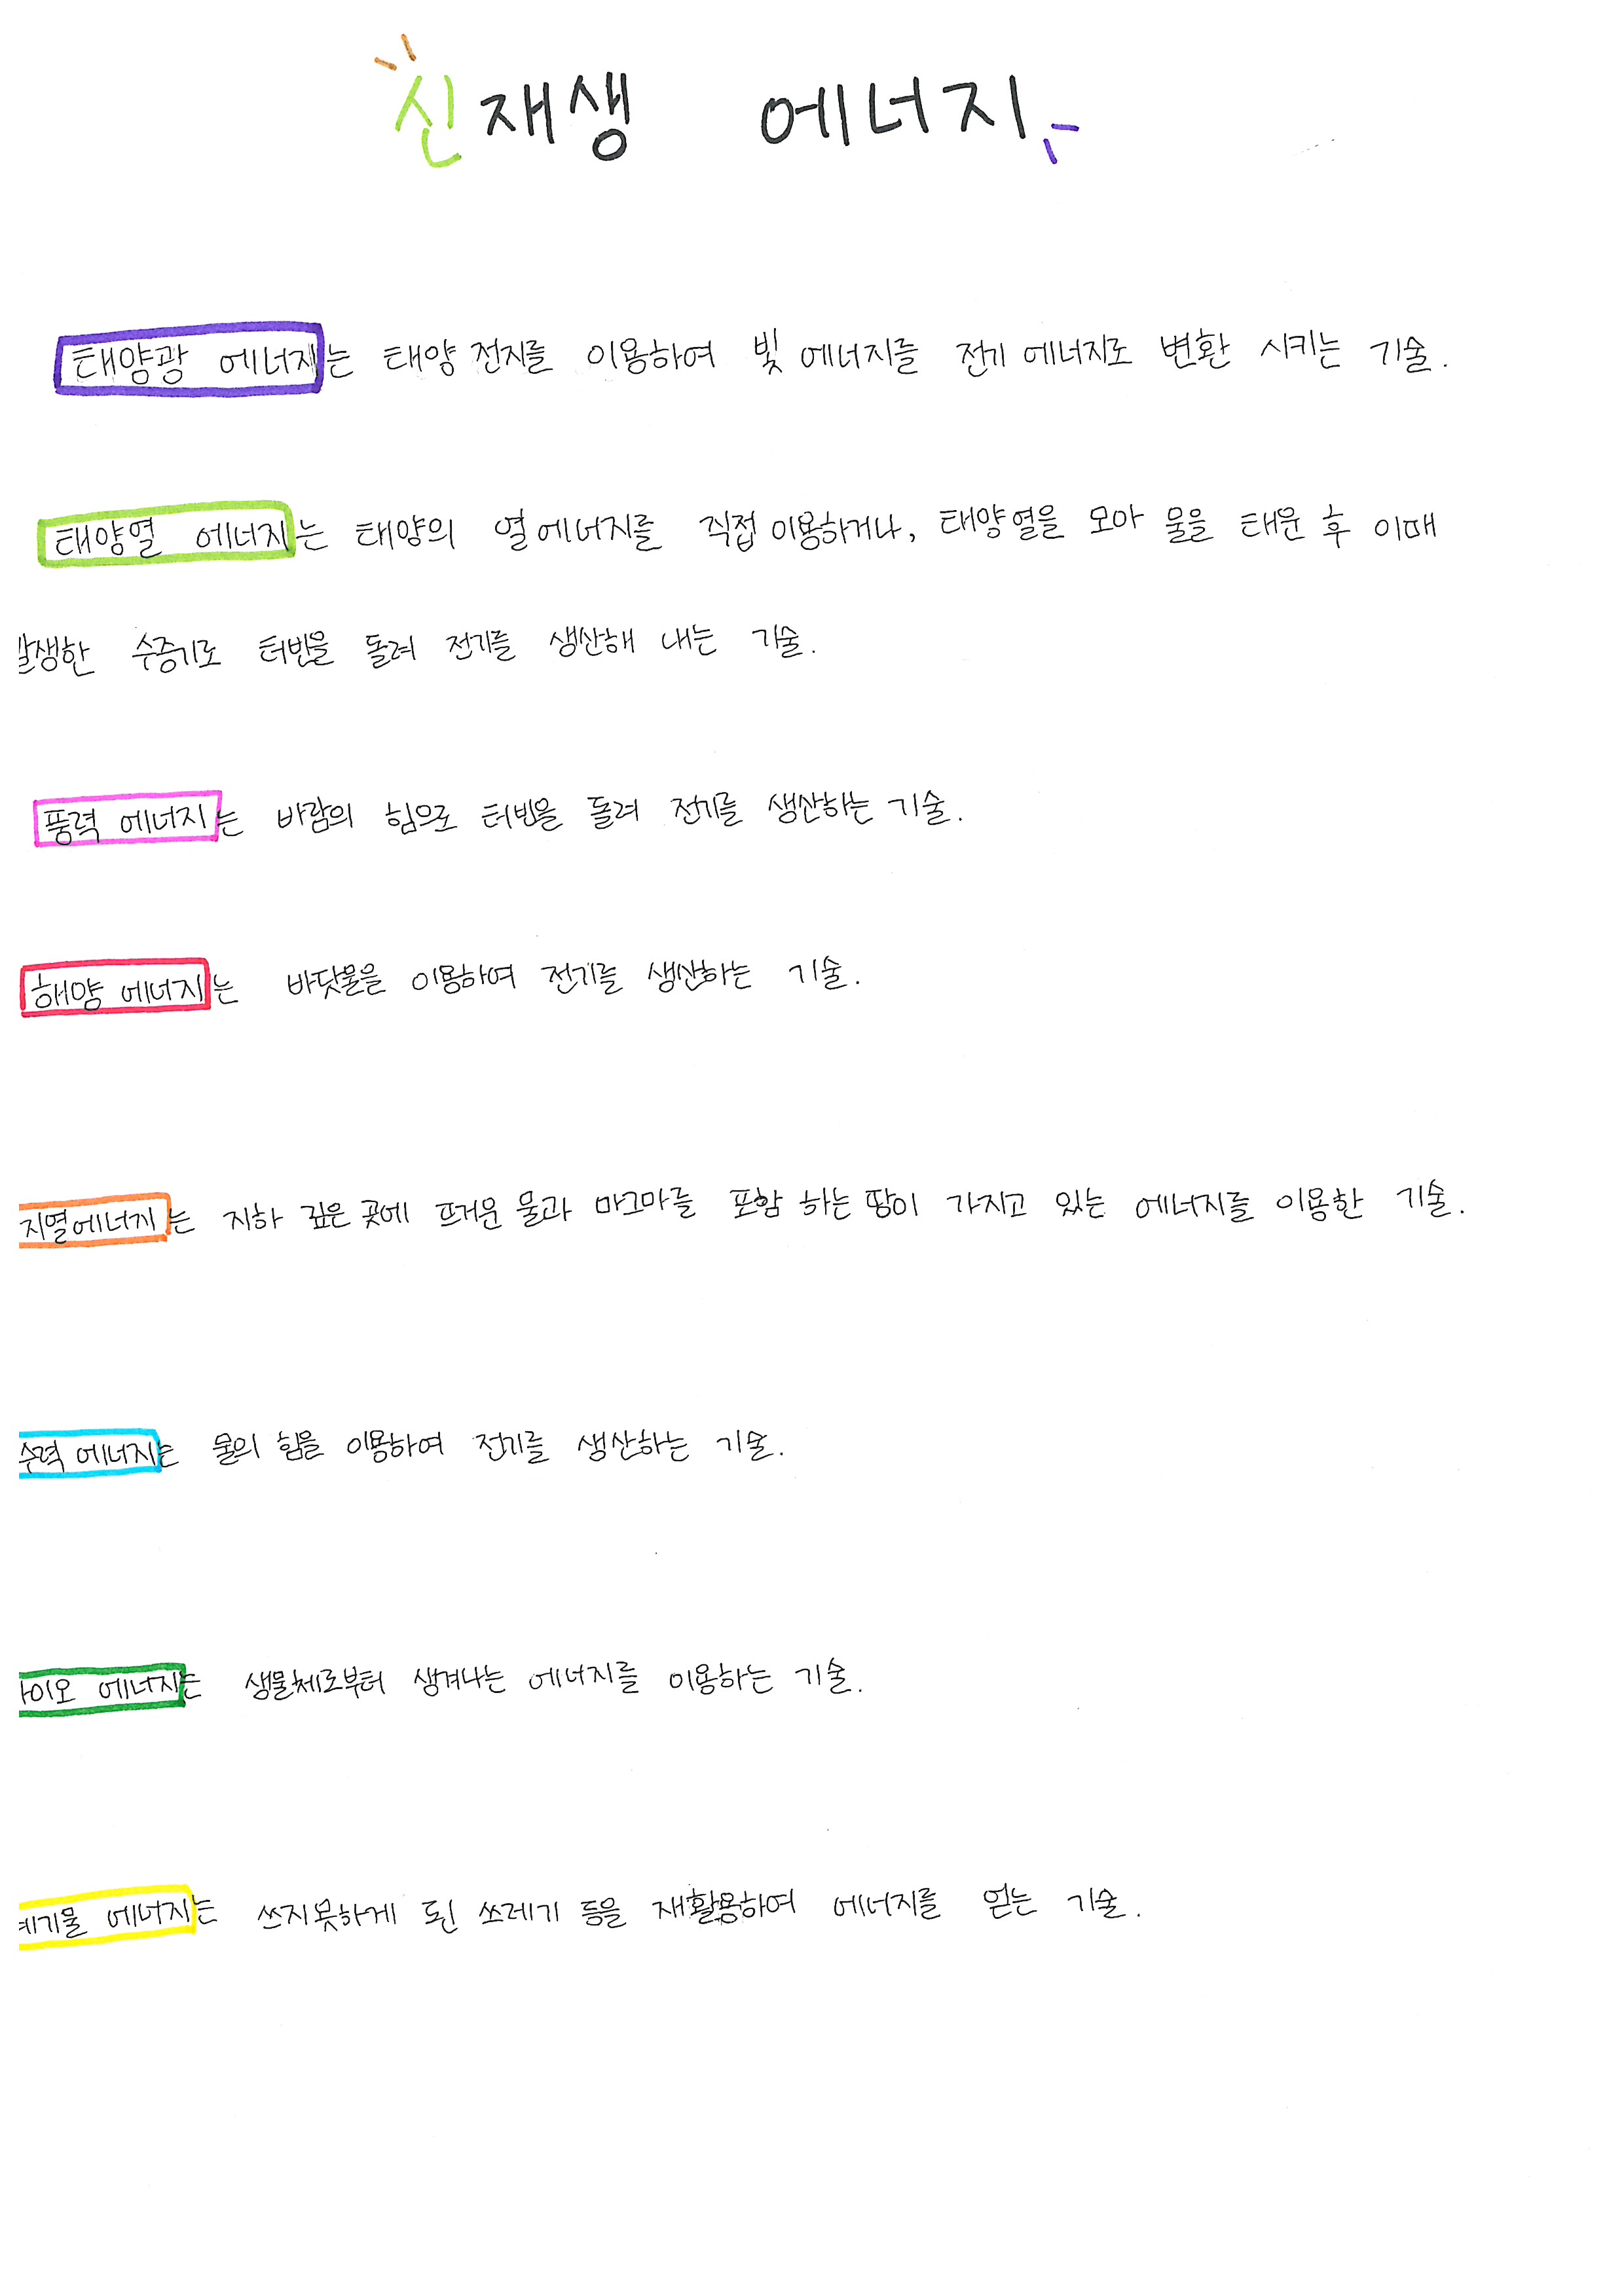 신재생 에너지
태양광 에너지는 태양 전지를 이용하여 빛 에너지를 전기 에너지로 변환 시키는 기술.
태양열 에너지는 태양의 열에너지를 직접 이용하거나, 태양열을 모아 물을 태운 후 이때
발생한 수증기로 터빈을 돌려 전기를 생산해 내는 기술.
풍력 에너지는 바람의 힘으로 터빈을 돌려 전기를 생산하는 기술.
해양 에너지는 바닷물을 이용하여 전기를 생산하는 기술.
지열에너지는 지하 깊은 곳에 뜨거운 물과 마그마를 포함 하는 땅이 가지고 있는 에너지를 이용한 기술.
수력 에너지는 물의 힘을 이용하여 전기를 생산하는 기술.
바이오 에너지는 생물체로부터 생겨나는 에너지를 이용하는 기술.
폐기물 에너지는 쓰지못하게 된 쓰레기 등을 재활용하여 에너지를 얻는 기술.